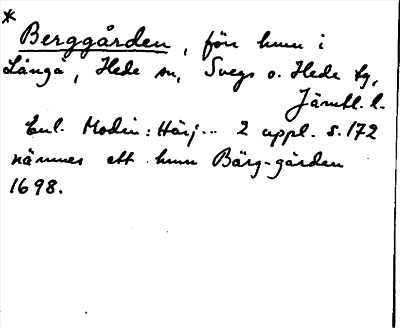 * Berggården, förr hmn i
Långå, Hede sn, Svegs o. Hede tg,
Jämtl. l.
Enl. Modin: Härj... 2 uppl. s. 172
nämnes ett hmn Bärg-gården
1698.